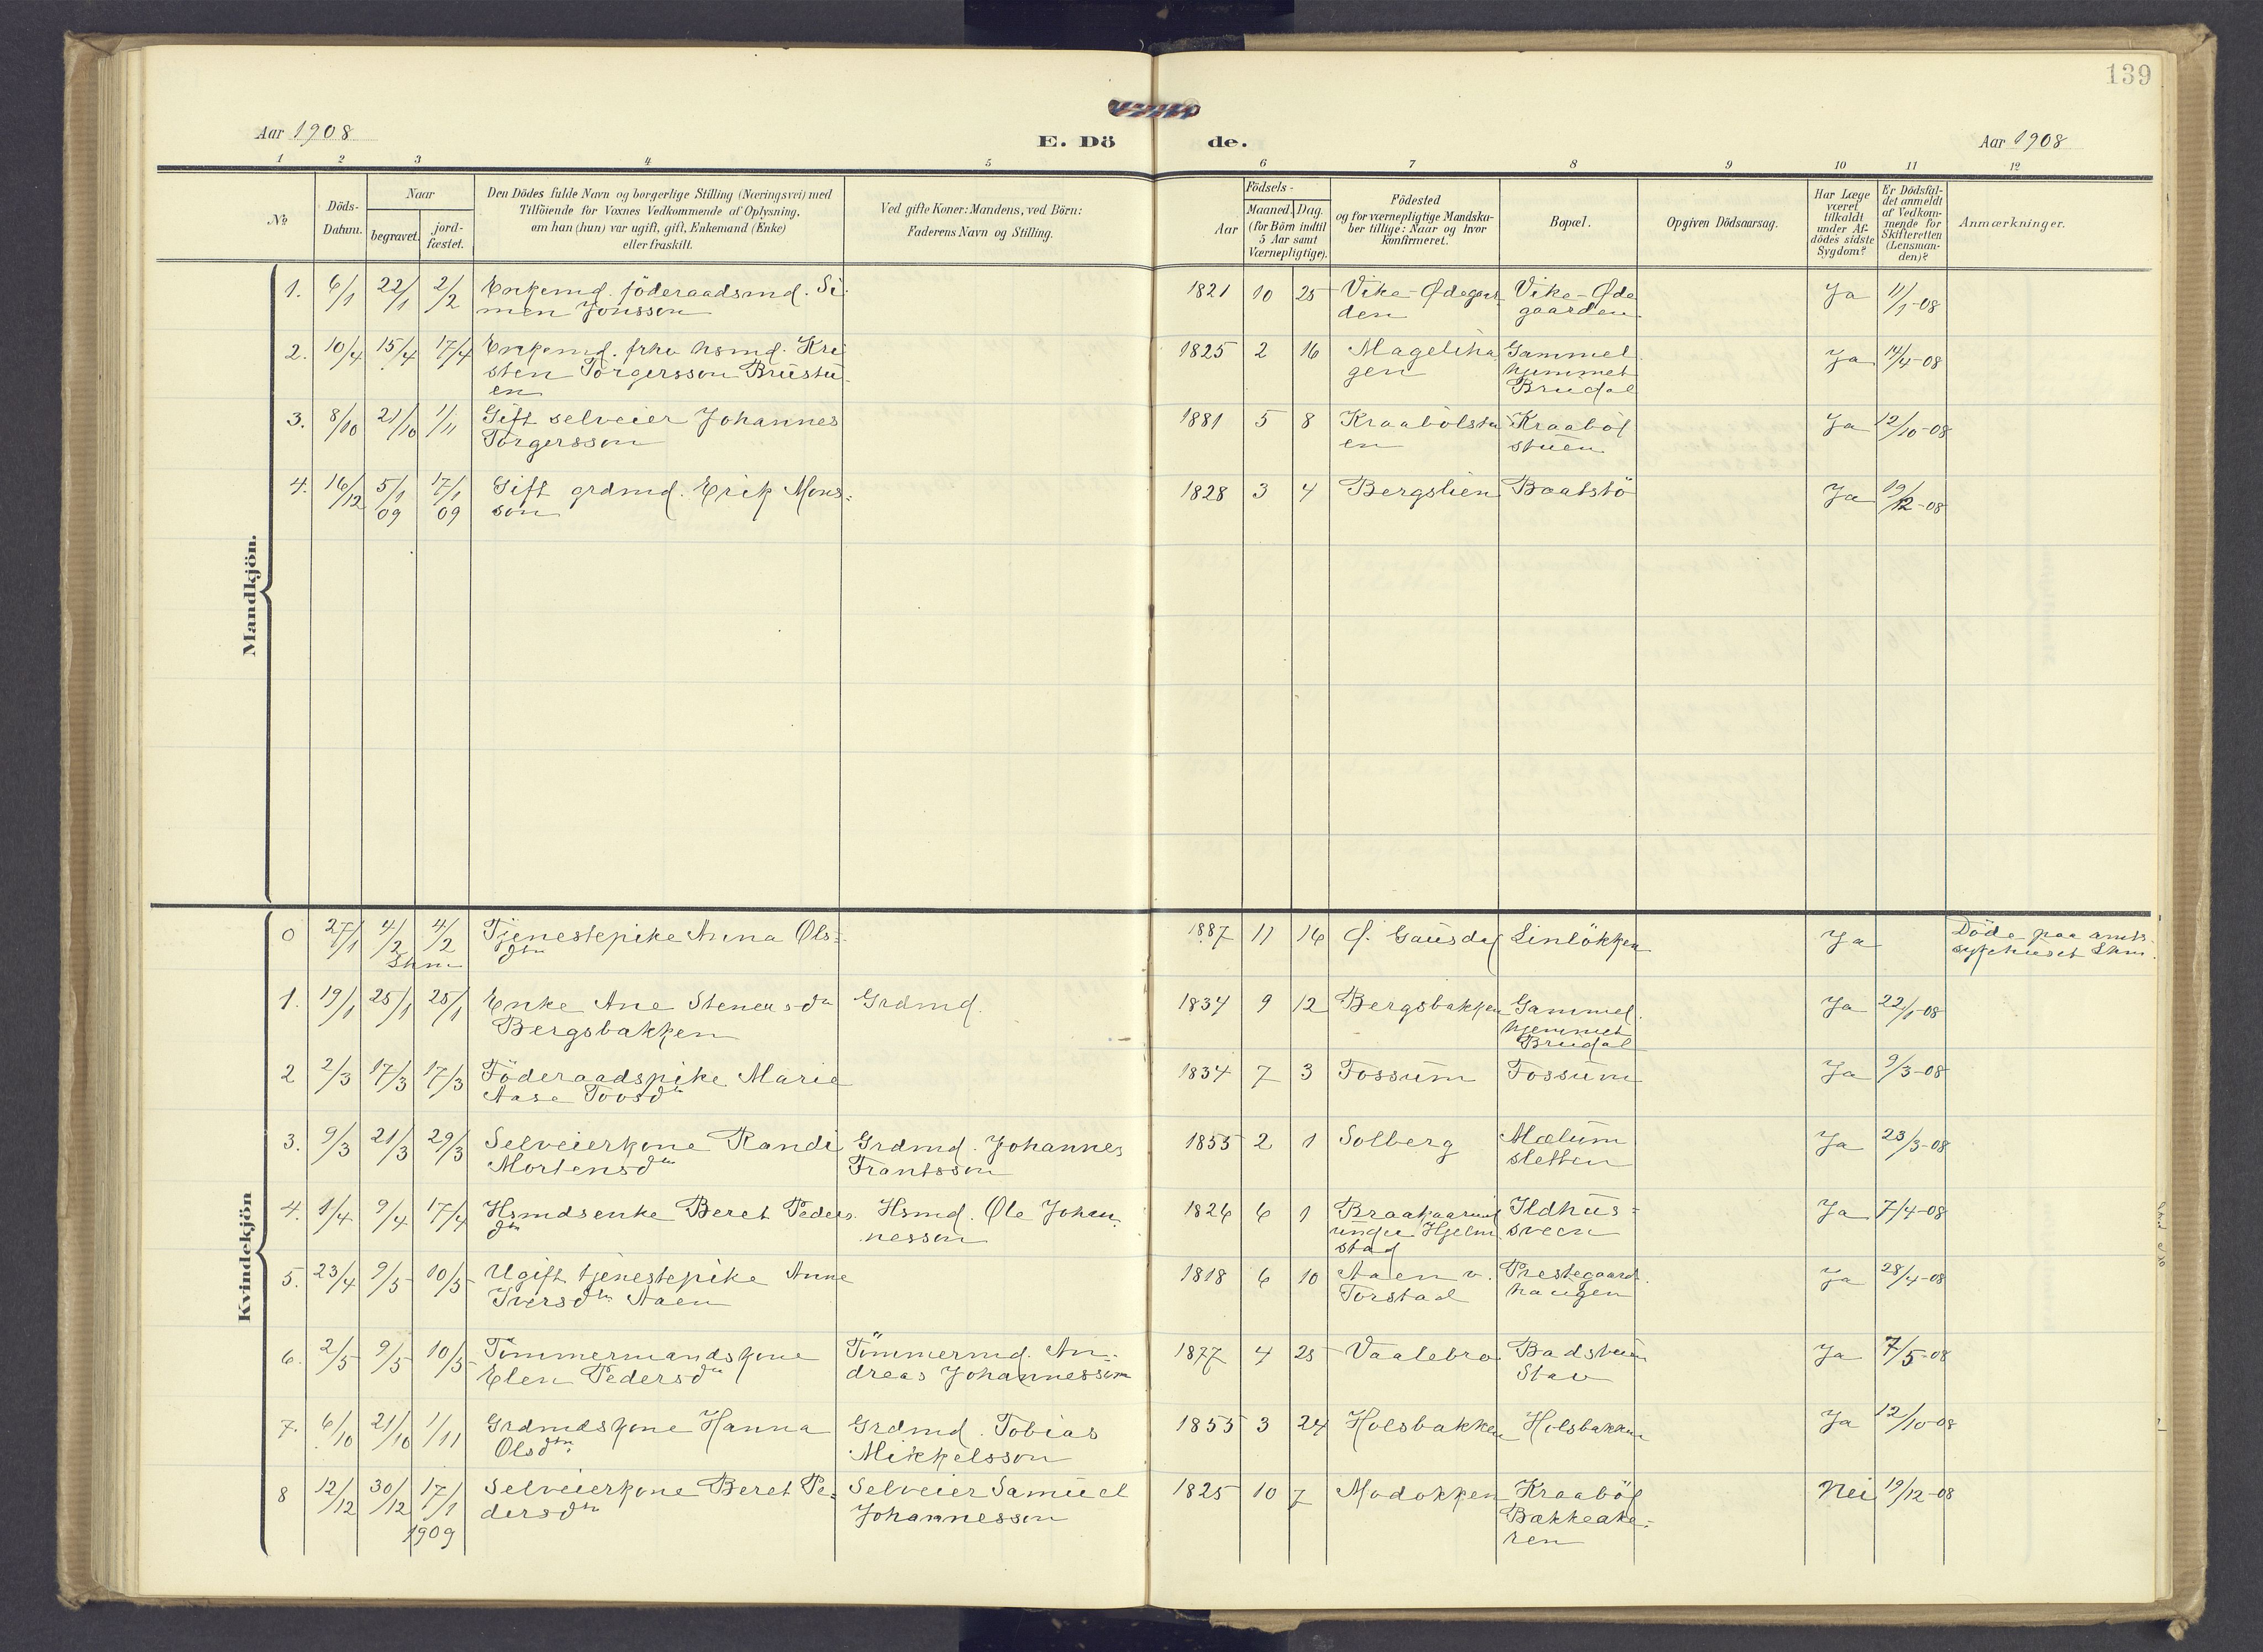 139
Aar 1908
E. Dö de.
Aar 1908
1 2 3 4 5 6 7 8 9 10 11 12
№
Döds-
Datum.
Naar
begravet.
jord-
fæstet.
Den Dödes fulde Navn og borgerlige Stilling (Næringsvei) med
Tilföiende for Voxnes Vedkommende af Oplysning,
om han (hun) var ugift, gift, Enkemand (Enke)
eller fraskilt.
Ved gifte Koner: Mandens, ved Börn:
Faderens Navn og Stilling.
Födsels-
Aar
Maaned. Dag.
(for Börn indtil
5 Aar samt
Værnepligtige).
Födested
og for værnepligtige Mandska-
ber tillige: Naar og hvor
Konfirmeret.
Bopæl.
Opgiven Dödsaarsag.
Har Læge
været
tilkaldt
under Af-
dödes sidste
Sygdom?
Er Dödsfal-
det anmeldt
af Vedkom-
mende for
Skifteretten
(Lensman-
den)?
Anmærkninger.
Mandkjön.
1. 6/1 22/1 2/2 Enkemd. föderaadsmd. Si-
men Jonsson
1821 10 25 Vike-Ødegaar
den
Vike-Øde
gaarden.
Ja 11/1-08
2. 10/4 15/4 17/4 Enkemd. frhv hsmd. Kri
sten Torgersson Brustu
en
1825 2 16 Magelihau
gen
Gammel
hjemmet
Brudal
Ja 14/4-08
3. 8/10 21/10 1/11 Gift selveier Johannes
Torgersson
1881 5 8 Kraabölstu
en
Kraaböl
stuen
Ja 12/10-08
4. 16/12 5/1 09 17/1 09 Gift grdmd. Erik Mons=
son
1828 3 4 Bergslien Baatstö Ja 19/12-08
Kvindekjön
0 27/1 4/2 4/2 Tjenestepike Anna Ols=
dtr
Lhm
1887 11 16 Ø. Gausdal Linlökken Ja
Döde paa amts
sykehuset Lhm.
1. 19/1 25/1 25/1 Enke Ane Stenersdtr
Bergsbakken
Grdmd.
1834 9 12 Bergsbakken Gammel
hjemmet
Brudal
Ja 22/1-08
2 2/3 17/3 17/3 Föderaadspike Marie
Aase Toosdtr
1834 7 3 Fossum Fossum Ja 9/3-08
3. 9/3 21/3 29/3 Selveierkone Randi
Mortensdtr
Grdmd. Johannes
Frantsson
1855 2 1 Solberg Mælum
sletten
Ja 23/3-08
4. 1/4 9/4 17/4 Hsmdsenke Beret Peders
dtr
Hsmd. Ole Johan
nesson
1826 6 1 Braakaarud
under Hjelm
stad
Ildhus=
sveen
Ja 7/4-08
5. 23/4 9/5 10/5 Ugift tjenestepike Anne
Iversdtr Aaen
1818 6 10 Aaen v.
Torstad
Prestegaards
haugen
Ja 28/4-08
6. 2/5 9/5 10/5 Tömmermandskone
Elen Pedersdtr
Tömmermd. An=
dreas Johannesson
1877 4 25 Vaalebro Badstuen
Stav
Ja 7/5-08
7. 6/10 21/10 1/11 Grdmdskone Hanna
Olsdtr.
Grdmd. Tobias
Mikkelsson
1855 3 24 Holsbakken Holsbakken Ja 12/10-08
8 12/12 30/12 17/1 1909 Selveierkone Beret Pe=
dersdtr
Selveier Samuel
Johannesson
1825 10 7 Modokken Kraaböl
Bakkeake=
ren
Nei 19/12-08